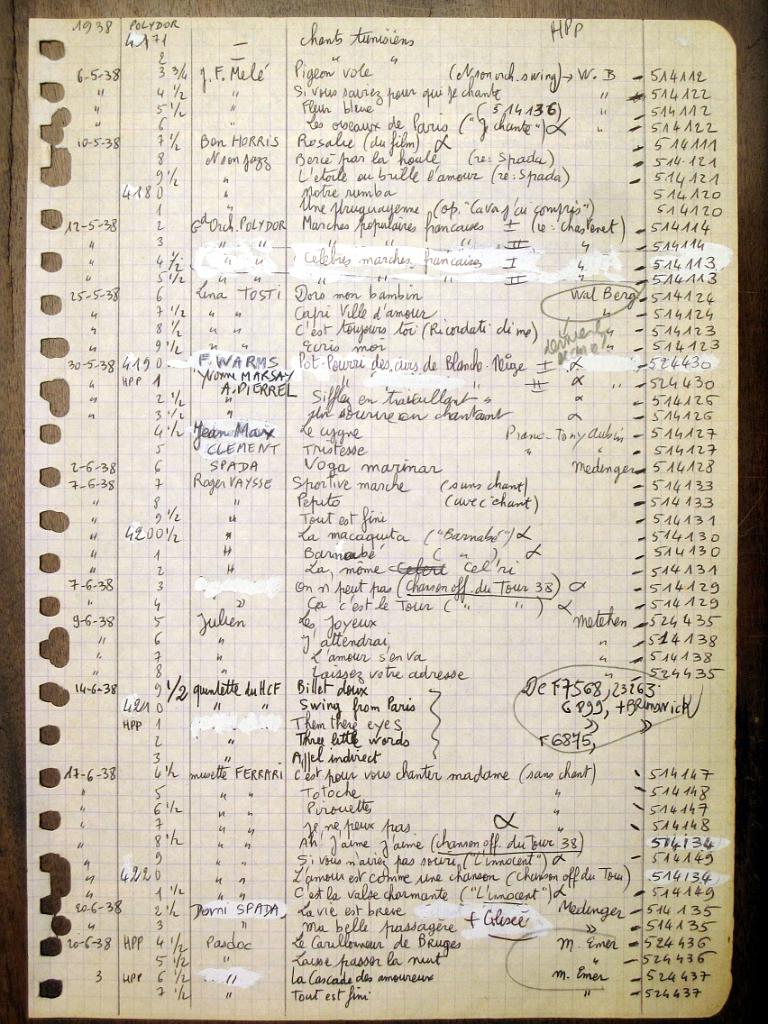 1938 POLYDOR HPP
4171 — chants tunisiens
2 — " "
6-5-38 3 3/4 J. F. Melé Pigeon vole (N son orch. swing) → W. B - 514112
" 4 1/2 " Si vous saviez pour qui je chante " - 514122
" 5 1/2 " Fleur bleue (514136) " - 514112
" 6 " Les oiseaux de Paris ("Je chante") α " - 514122
10-5-38 7 1/2 Ben HORRIS Rosalie (du film) α - 514111
8 N son jazz Bercé par la houle (re: Spada) - 514121
9 1/2 " L'étoile où brille l'amour (re: Spada) - 514121
4180 " Notre rumba 514120
1 " Une Uruguayenne (op. "Ca va j'ai compris") 514120
12-5-38 2 Gd Orch. POLYDOR Marches populaires françaises I (re: chastenet) - 514114
" 3 " " " " II " - 514114
" 4 1/2 " " Célèbres marches françaises I " - 514113
" 5 1/2 " " " " II " - 514113
25-5-38 6 Lina TOSTI Doro mon bambin Wal Berg - 514124
" 7 1/2 " " Capri Ville d'amour " - 514124
" 8 1/2 " " C'est toujours toi (Ricordati di me) " - 514123
" 9 1/2 " " Ecris moi " - 514123
30-5-38 4190 F. WARMS Pot-Pourri des airs de Blanche-Neige I α - 524430
" HPP 1 Yvonne MARSAY " " II α " - 524430
" 2 1/2 A. PIERREL Siffler en travaillant α - 514126
" 3 1/2 " Un sourire en chantant α - 514126
4 1/2 Jean Max Le cygne Piano-Tony Aubin - 514127
5 CLEMENT Tristesse " - 514127
2-6-38 6 SPADA Voga marinar Medinger - 514128
7-6-38 7 Roger VAYSSE Sportive marche (sans chant) - 514133
" 8 " Pepito (avec chant) - 514133
" 9 1/2 " Tout est fini - 514131
" 4200 1/2 " La macaquita ("Barnabé") α - 514130
" 1 " Barnabé ( " ) α - 514130
" 2 " La môme Cel'ri - 514131
7-6-38 3 On n'peut pas (Chanson off. du Tour 38) α - 514129
" 4 " Ca c'est le Tour ( " " ) α - 514129
9-6-38 5 Julien Les Joyeux Metehen - 524435
" 6 " J'attendrai " - 514138
" 7 " L'amour s'en va " - 514138
" 8 " Laissez votre adresse " - 524435
14-6-38 9 1/2 quintette du HCF Billet doux De F7568, 23263
" 4210 " " Swing from Paris 6899, + Brunswick
" HPP 1 Them there eyes " "
" 2 " Three little words F6875,
" 3 " Appel indirect
17-6-38 4 1/2 musette FERRARI C'est pour vous chanter madame (sans chant) - 514147
" 5 " " Totoche " - 514148
" 6 1/2 " " Pirouettes " - 514147
" 7 " " Je ne peux pas α " - 514148
" 8 1/2 " " Ah! j'aime j'aime (chanson off. du Tour 38) - 514134
" 9 " " Si vous n'aviez pas souri ("L'innocent") α - 514149
" 4220 " " L'amour est comme une chanson (chanson off du Tour) - 514134
" 1 1/2 " " C'est la valse charmante ("L'innocent") α - 514149
20-6-38 2 1/2 SPADA, La vie est brève Medinger - 514135
" 3 " Ma belle passagère + Gliseé " - 514135
20-6-38 HPP 4 1/2 Pasdoc Le Carillonneur de Bruges M. Emer - 524436
5 1/2 " Laisse passer la nuit " - 524436
3 HPP 6 1/2 " La Cascade des amoureux M. Emer - 524437
7 1/2 " Tout est fini " - 524437